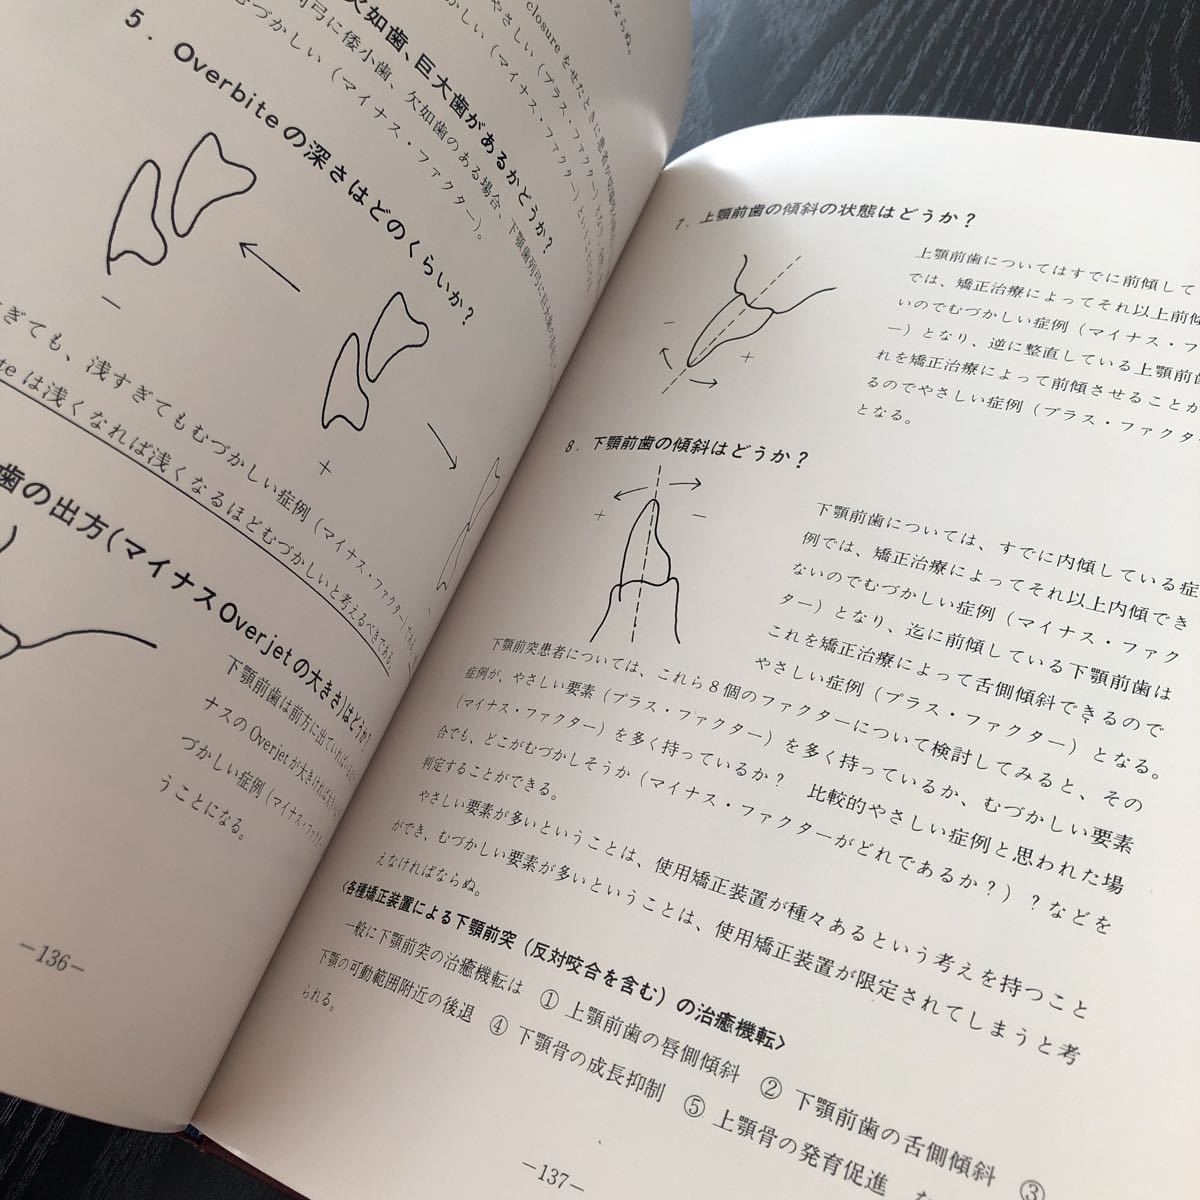 ならぬ。
closureをせたときに
やさしい（プラス・ファクター）
むづかしい（マイナス・ファクター）。
欠如歯、巨大歯があるかどうか？
列弓に倭小歯、欠如歯のある場合、下顎歯列弓に巨大歯の
5. Overbiteの深さはどのくらいか？
−
+
ぎても、浅すぎてもむづかしい症例（マイナス・ファクター）である
iteは浅くなれば浅くなるほどむづかしいと考えるべきである。
歯の出方（マイナスOverjetの大きさ）はどうか？
下顎前歯は前方に出ていれば
ナスのOverjetが大きければ大き
づかしい症例（マイナス・ファクター
うことになる。
—136—
7. 上顎前歯の傾斜の状態はどうか？
−
+
上顎前歯についてはすでに前傾して
では、矯正治療によってそれ以上前傾
いのでむづかしい症例（マイナス・ファ
ー）となり、逆に整直している上顎前歯
れを矯正治療によって前傾させることが
るのでやさしい症例（プラス・ファクタ
となる。
8. 下顎前歯の傾斜はどうか？
+
−
下顎前歯については、すでに内傾している症
例では、矯正治療によってそれ以上内傾でき
ないのでむづかしい症例（マイナス・ファク
ター）となり、迄に前傾している下顎前歯は
これを矯正治療によって舌側傾斜できるので
やさしい症例（プラス・ファクター）となる。
下顎前突患者については、これら8個のファクターについて検討してみると、その
症例が、やさしい要素（プラス・ファクター）を多く持っているか、むづかしい要素
（マイナス・ファクター）を多く持っているか？　比較的やさしい症例と思われた場
合でも、どこがむづかしそうか（マイナス・ファクターがどれであるか？）？などを
判定することができる。
やさしい要素が多いということは、使用矯正装置が種々あるという考えを持つこと
ができ、むづかしい要素が多いということは、使用矯正装置が限定されてしまうと考
えなければならぬ。
〈各種矯正装置による下顎前突（反対咬合を含む）の治癒機転〉
一般に下顎前突の治癒機転は　①　上顎前歯の唇側傾斜　②　下顎前歯の舌側傾斜　③
下顎の可動範囲附近の後退　④　下顎骨の成長抑制　⑤　上顎骨の発育促進　な
られる。
—137—